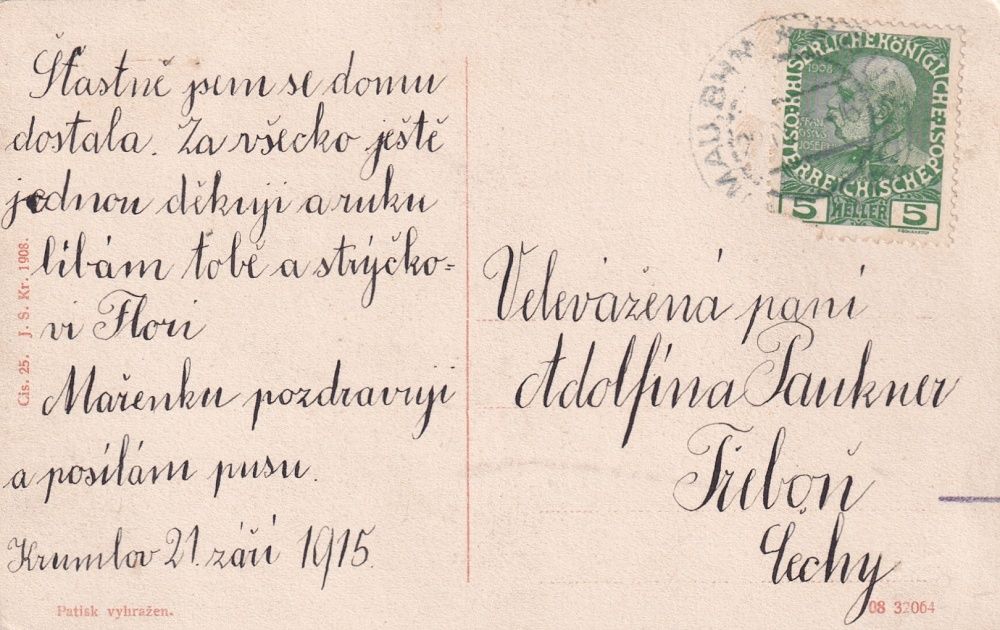 Šťastně jsem se domu
dostala. Za všecko ještě
jednou děkuji a ruku
líbám tobě a strýčko-
vi Flori
Mařenku pozdravuji
a posílám pusu.
Krumlov 21. září 1915.
Čís. 25. J. S. Kr. 1908.
Patisk vyhražen.
KAISERLICHE KÖNIGLICHE
ÖSTERREICHISCHE POST
1908
FRANZ
JOSEPH I
5 HELLER 5
Velevážená paní
Adolfína Paukner
Třeboň
Čechy
08 32064